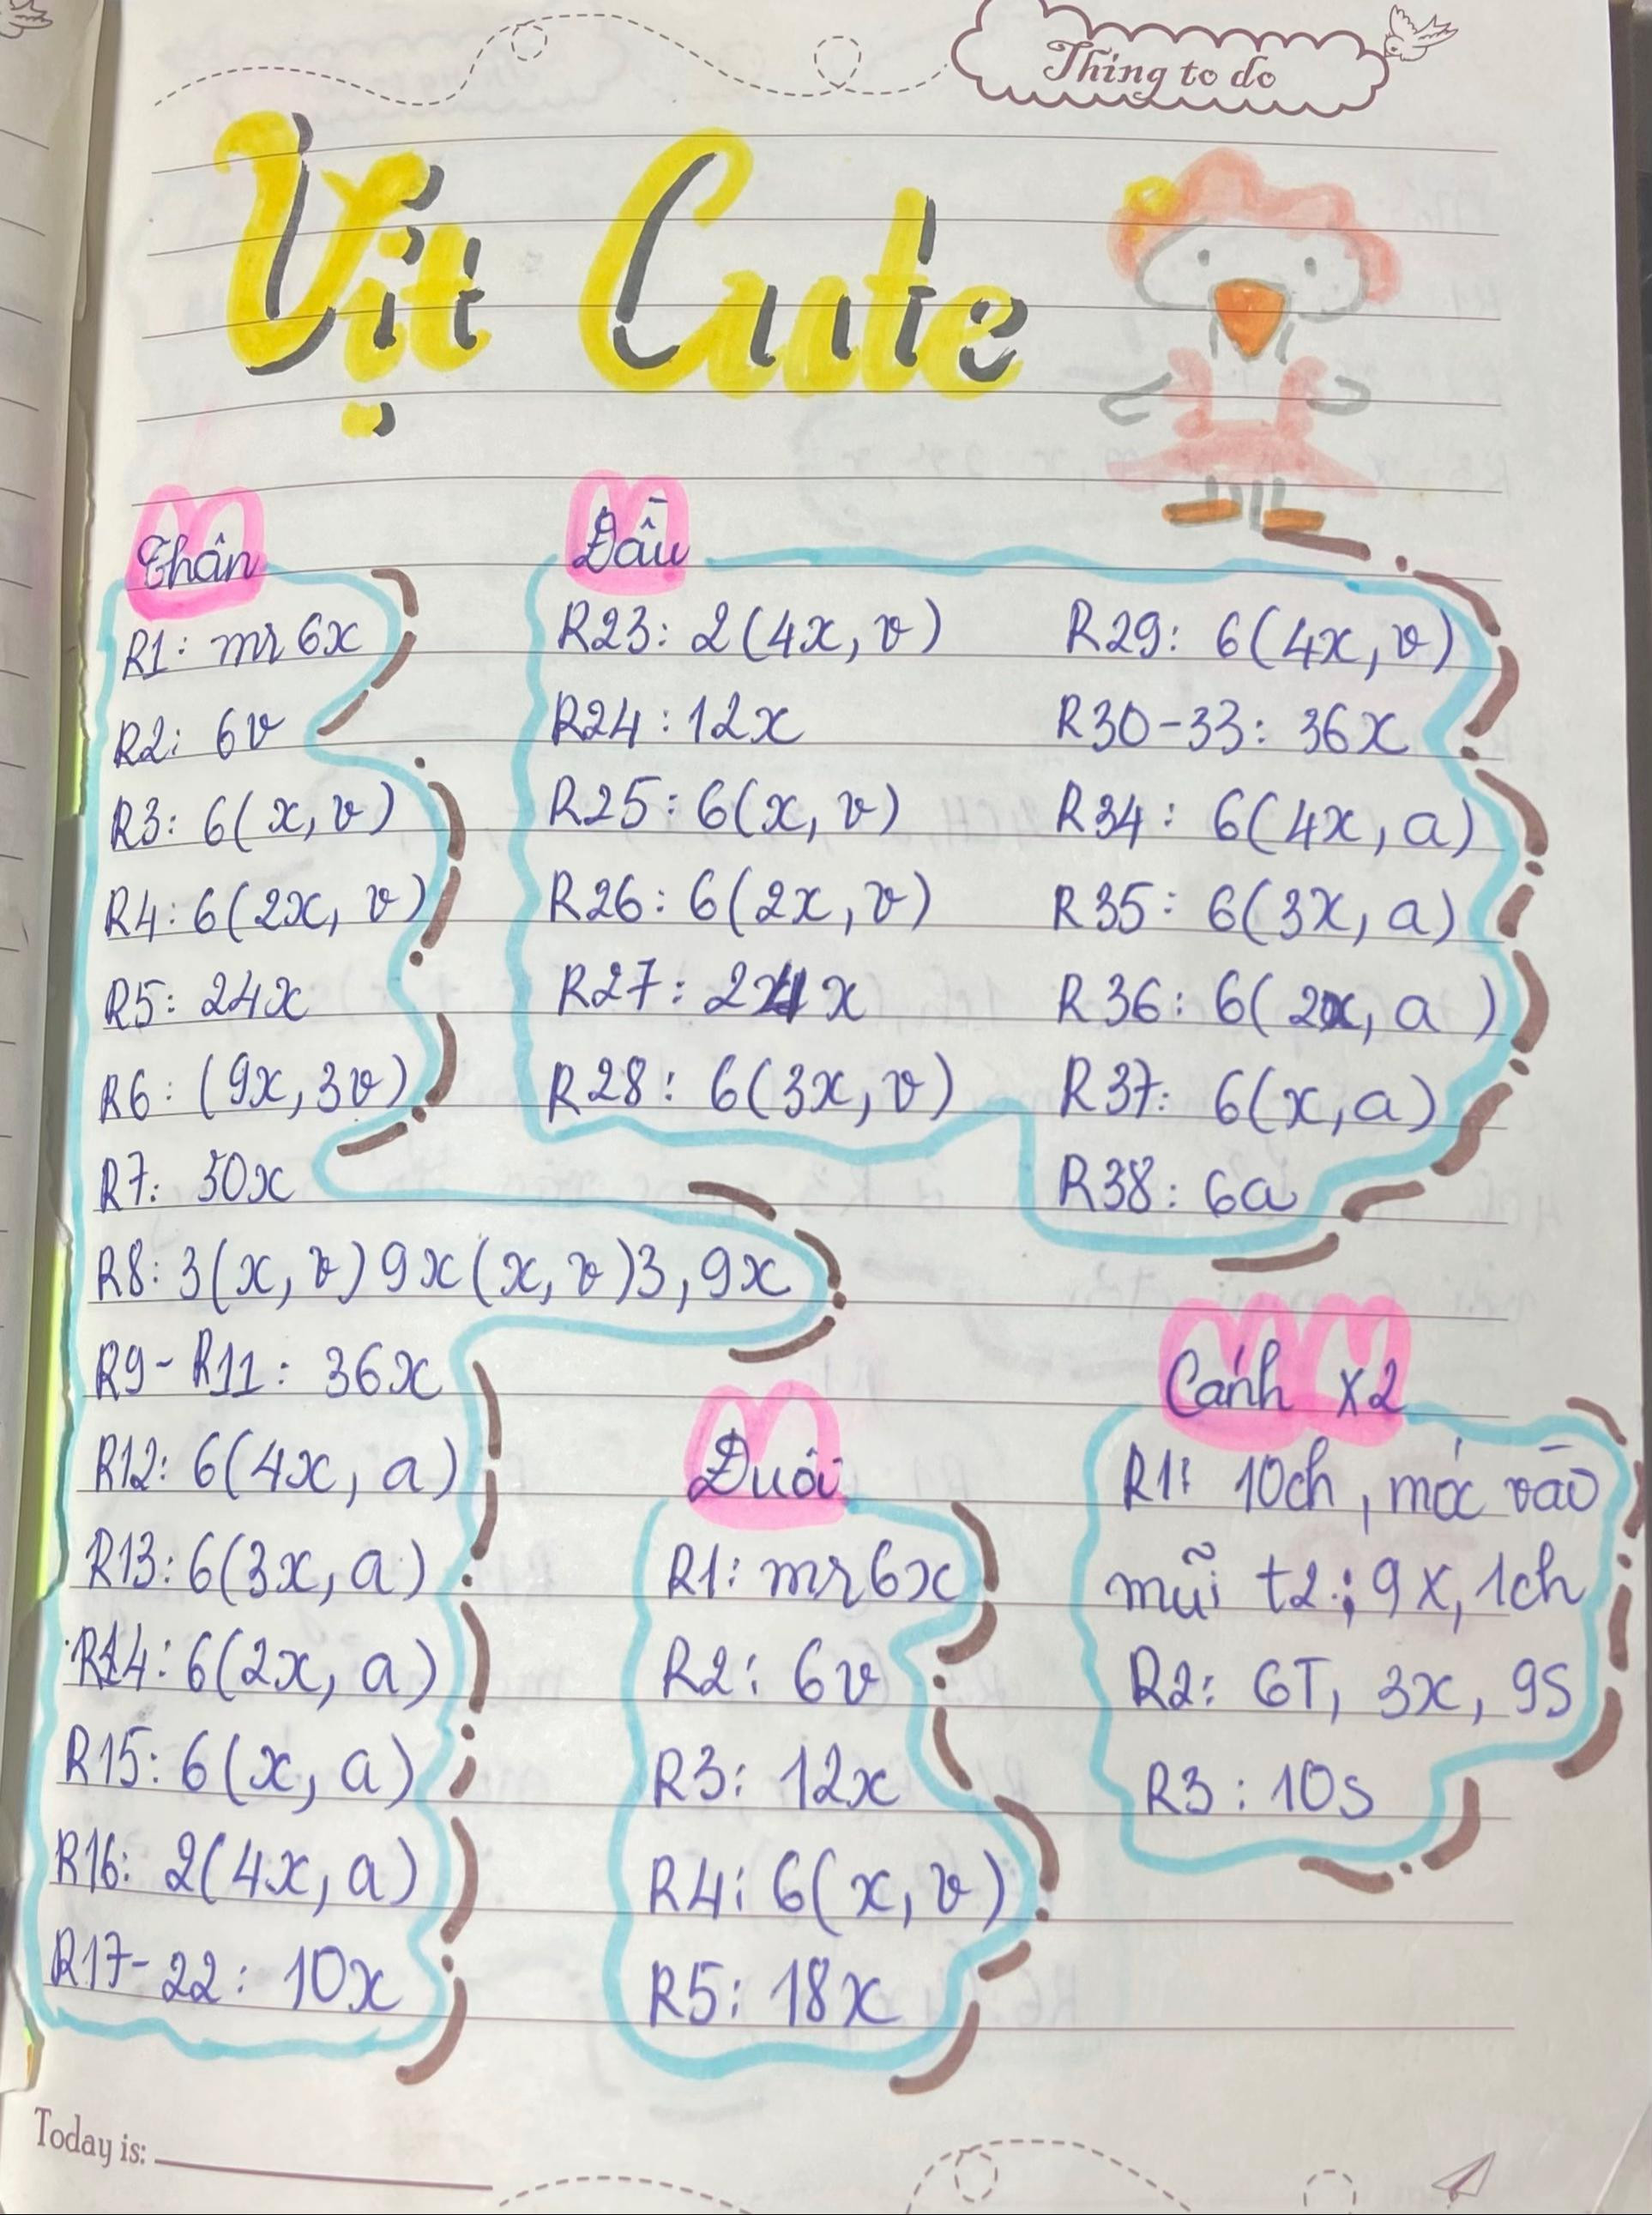 Thing to do
Vịt Cute
Thân
R1: mr 6x
R2: 6v
R3: 6(x, v)
R4: 6(2x, v)
R5: 24x
R6: (9x, 3v)
R7: 30x
R8: 3(x, v) 9x (x, v)3, 9x
R9- R11: 36x
R12: 6(4x, a)
R13: 6(3x, a)
R14: 6(2x, a)
R15: 6(x, a)
R16: 2(4x, a)
R17-22: 10x
Đầu
R23: 2(4x, v)
R24: 12x
R25: 6(x, v)
R26: 6(2x, v)
R27: 24x
R28: 6(3x, v)
R29: 6(4x, v)
R30-33: 36x
R34: 6(4x, a)
R35: 6(3x, a)
R36: 6(2x, a)
R37: 6(x, a)
R38: 6a
Đuôi
R1: mr 6x
R2: 6v
R3: 12x
R4: 6(x, v)
R5: 18x
Cánh x2
R1: 10ch, móc vào
mũi t2; 9x, 1ch
R2: 6T, 3x, 9S
R3: 10s
Today is: